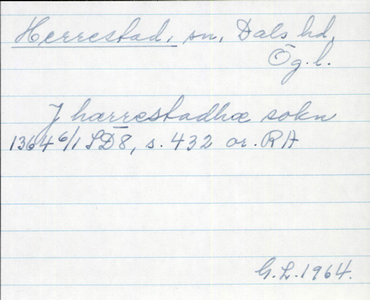 Herrestad, sn, Dals hd,
Ög. l.
J hærrestadhæ sokn
1364 6/1 SD8, s. 432 or. RA
G.L. 1964.